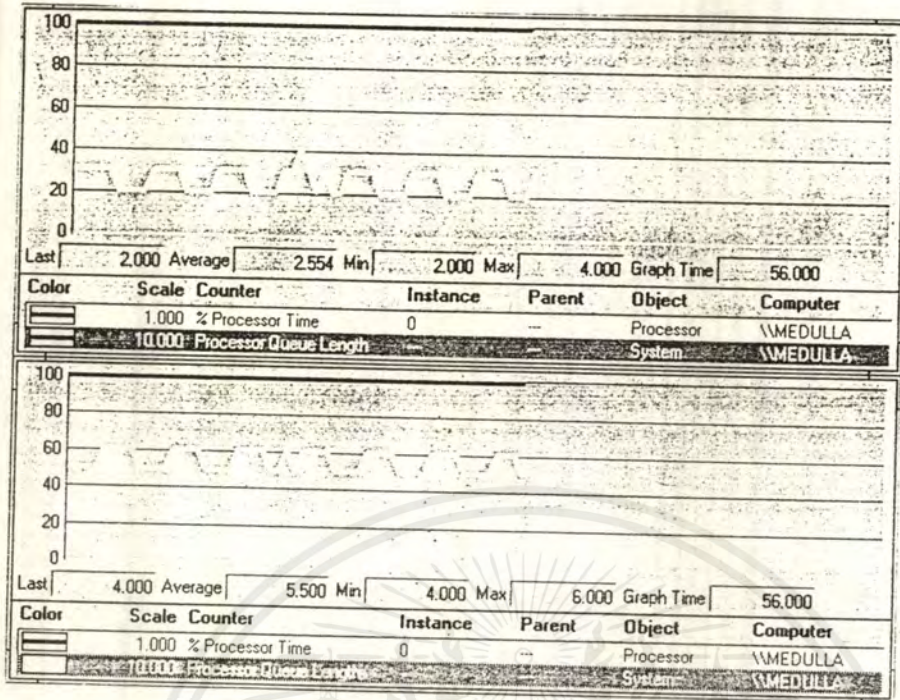 100
80
60
40
20
0
Last 2.000 Average 2.554 Min 2.000 Max 4.000 Graph Time 56.000
Color Scale Counter Instance Parent Object Computer
1.000 % Processor Time 0 --- Processor \\MEDULLA
10.000 Processor Queue Length --- --- System \\MEDULLA
100
80
60
40
20
0
Last 4.000 Average 5.500 Min 4.000 Max 6.000 Graph Time 56.000
Color Scale Counter Instance Parent Object Computer
1.000 % Processor Time 0 --- Processor \\MEDULLA
10.000 Processor Queue Length --- --- System \\MEDULLA